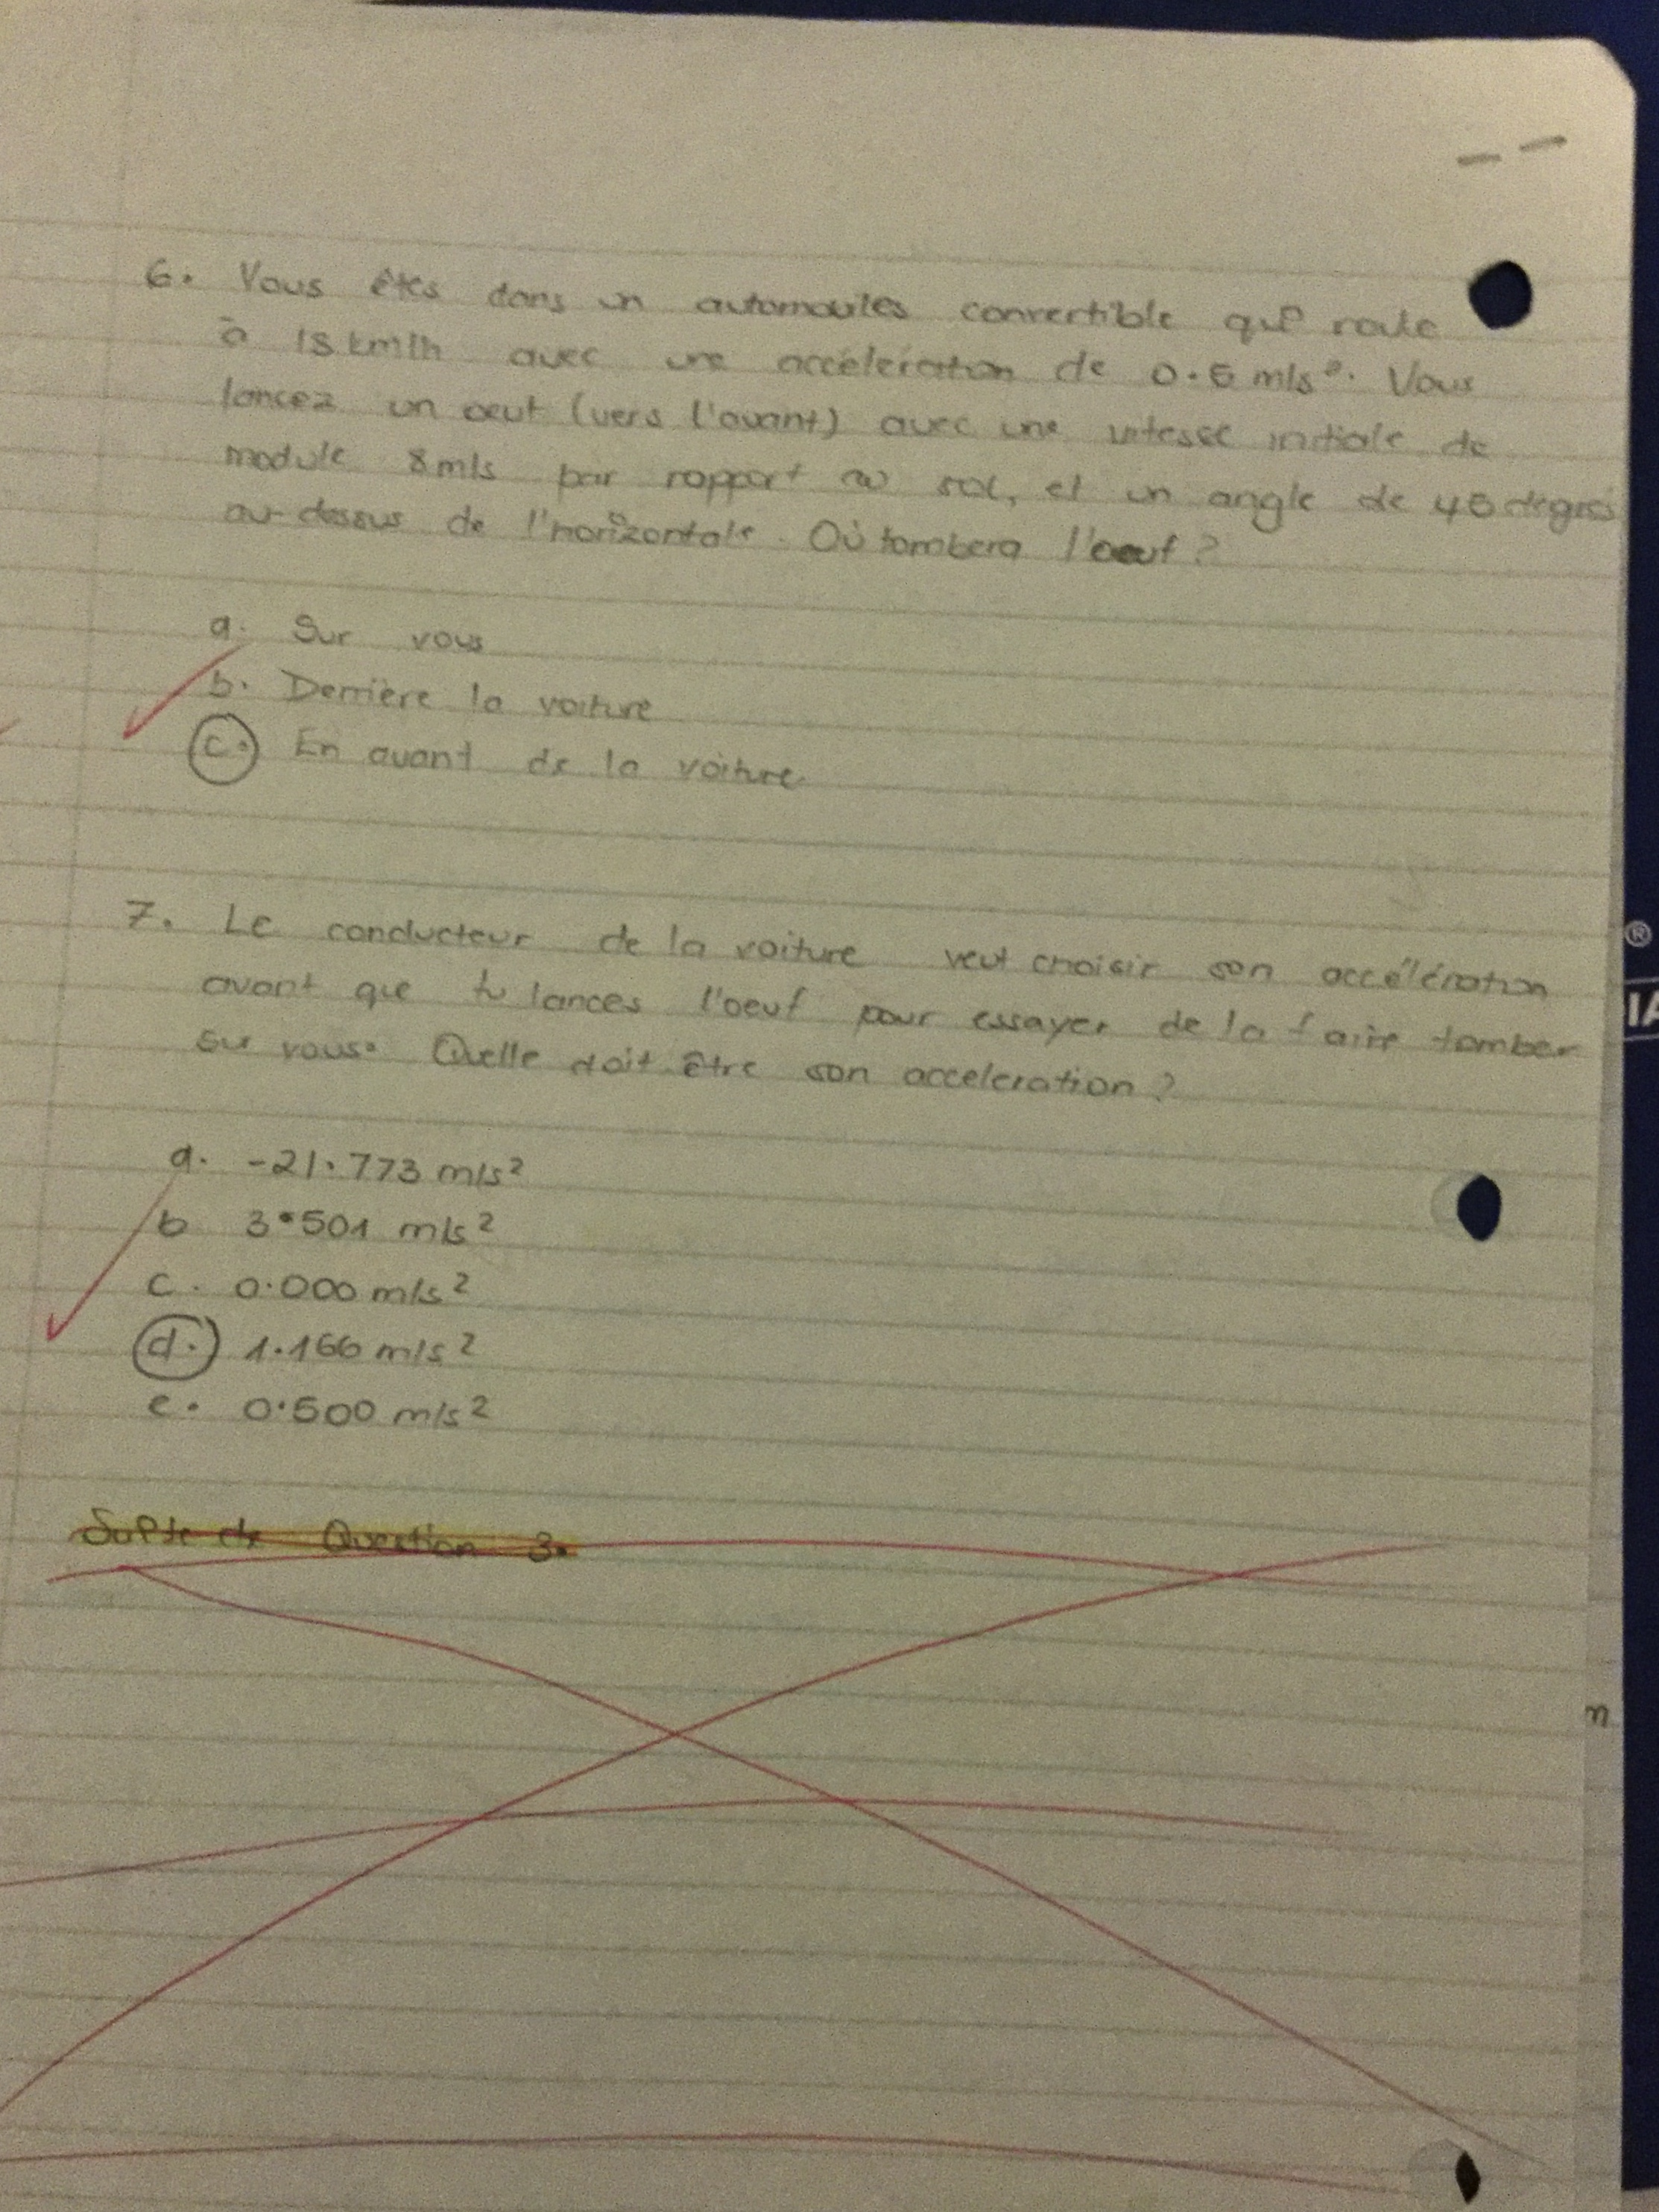 6. Vous êtes dans un automobiles convertible qui roule
à 18 km/h avec une accéleration de 0.5 m/s². Vous
lancez un oeuf (vers l'avant) avec une vitesse initiale de
module 8m/s par rapport au sol, et un angle de 45 degrés
au-dessus de l'horizontale. Où tombera l'oeuf?
a. Sur vous
b. Derrière la voiture
c. En avant de la voiture
7. Le conducteur de la voiture veut choisir son accélération
avant que tu lances l'oeuf pour essayer de la faire tomber
sur vous. Quelle doit être son acceleration?
a. -21.773 m/s²
b 3.501 m/s²
c. 0.000 m/s²
d. 1.166 m/s²
e. 0.500 m/s²
Suite de Question 3.
®
IA
n